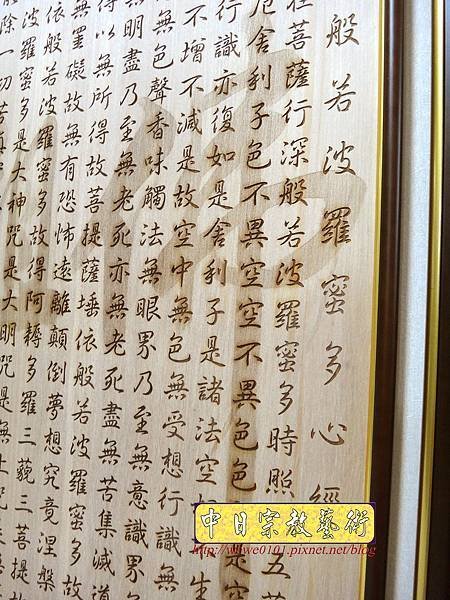 般若波羅蜜多心經
在菩薩行深般若波羅蜜多時照五
厄舍利子色不異空空不異色色是空
行識亦復如是舍利子是諸法空生
不增不減是故空中無色無受想行識無
無色聲香味觸法無眼界乃至無意識界
無明盡乃至無老死亦無老死盡無苦集滅道
得以無所得故菩提薩埵依般若波羅蜜多故
無罣礙故無有恐怖遠離顛倒夢想究竟涅槃
依般若波羅蜜多故得阿耨多羅三藐三菩提故
波羅蜜多是大神咒是大明咒是無上咒
除一切苦真
中日宗教藝術
http://wewe0101.pixnet.net/blog